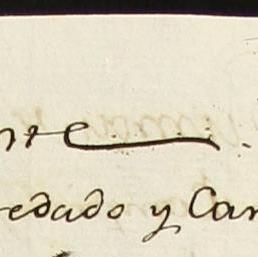 nte
redado y Can